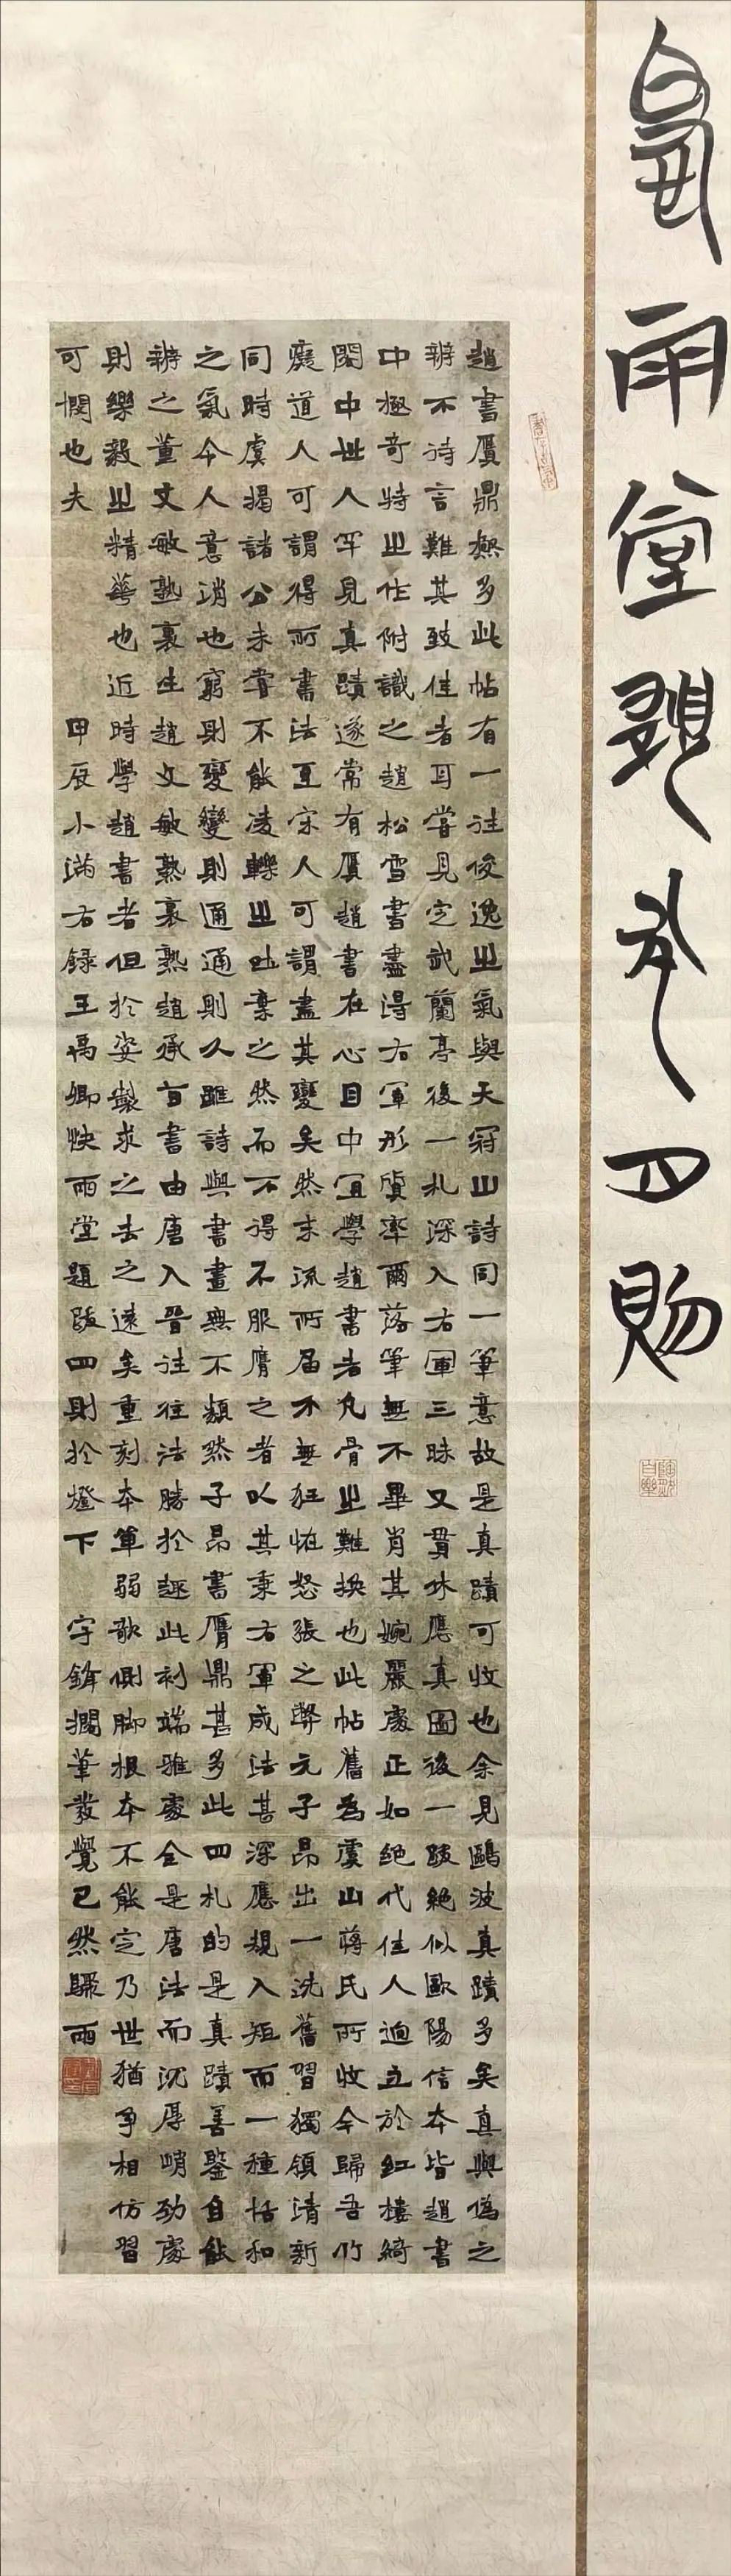 雨堂題跋四則
趙書贗鼎極多此帖有一往俊逸之氣與天冠山詩同一筆意故是真蹟可收也余見鷗波真蹟多矣真與偽之
辨不待言難其致佳者耳嘗見定武蘭亭後一札深入右軍三昧又貫休應真圖後一跋絕似歐陽信本皆趙書
中極奇特之作附識之趙松雪書盡得右軍形質率爾落筆無不畢肖其婉麗處正如絕代佳人迥立於紅樓綺
閣中世人罕見真蹟遂常有贗趙書在心目中宜學趙書者凡骨之難換也此帖舊為虞山蔣氏所收今歸吾竹
癡道人可謂得所書法至宋人可謂盡其變矣然末流所屆不無狂怪怒張之弊元子昂出一洗舊習獨領清新
同時虞揭諸公未嘗不能凌轢之吐棄之然而不得不服膺之者以其秉右軍成法甚深應規入矩而一種恬和
之氣令人意消也窮則變變則通通則久雖詩與書畫無不類然子昂書贗鼎甚多此四札的是真蹟善鑒自能
辨之董文敏熟裏生趙文敏熟裏熟趙承旨書由唐入晉往往法勝於趣此札端雅處全是唐法而沉厚峭勁處
則樂毅之精華也近時學趙書者但於姿製求之去之遠矣重刻本單弱欹側腳根本不能定乃世猶爭相仿習
可憫也夫 甲辰小滿右錄王禹卿快雨堂題跋四則於燈下 字鋒擱筆發覺已然驟雨